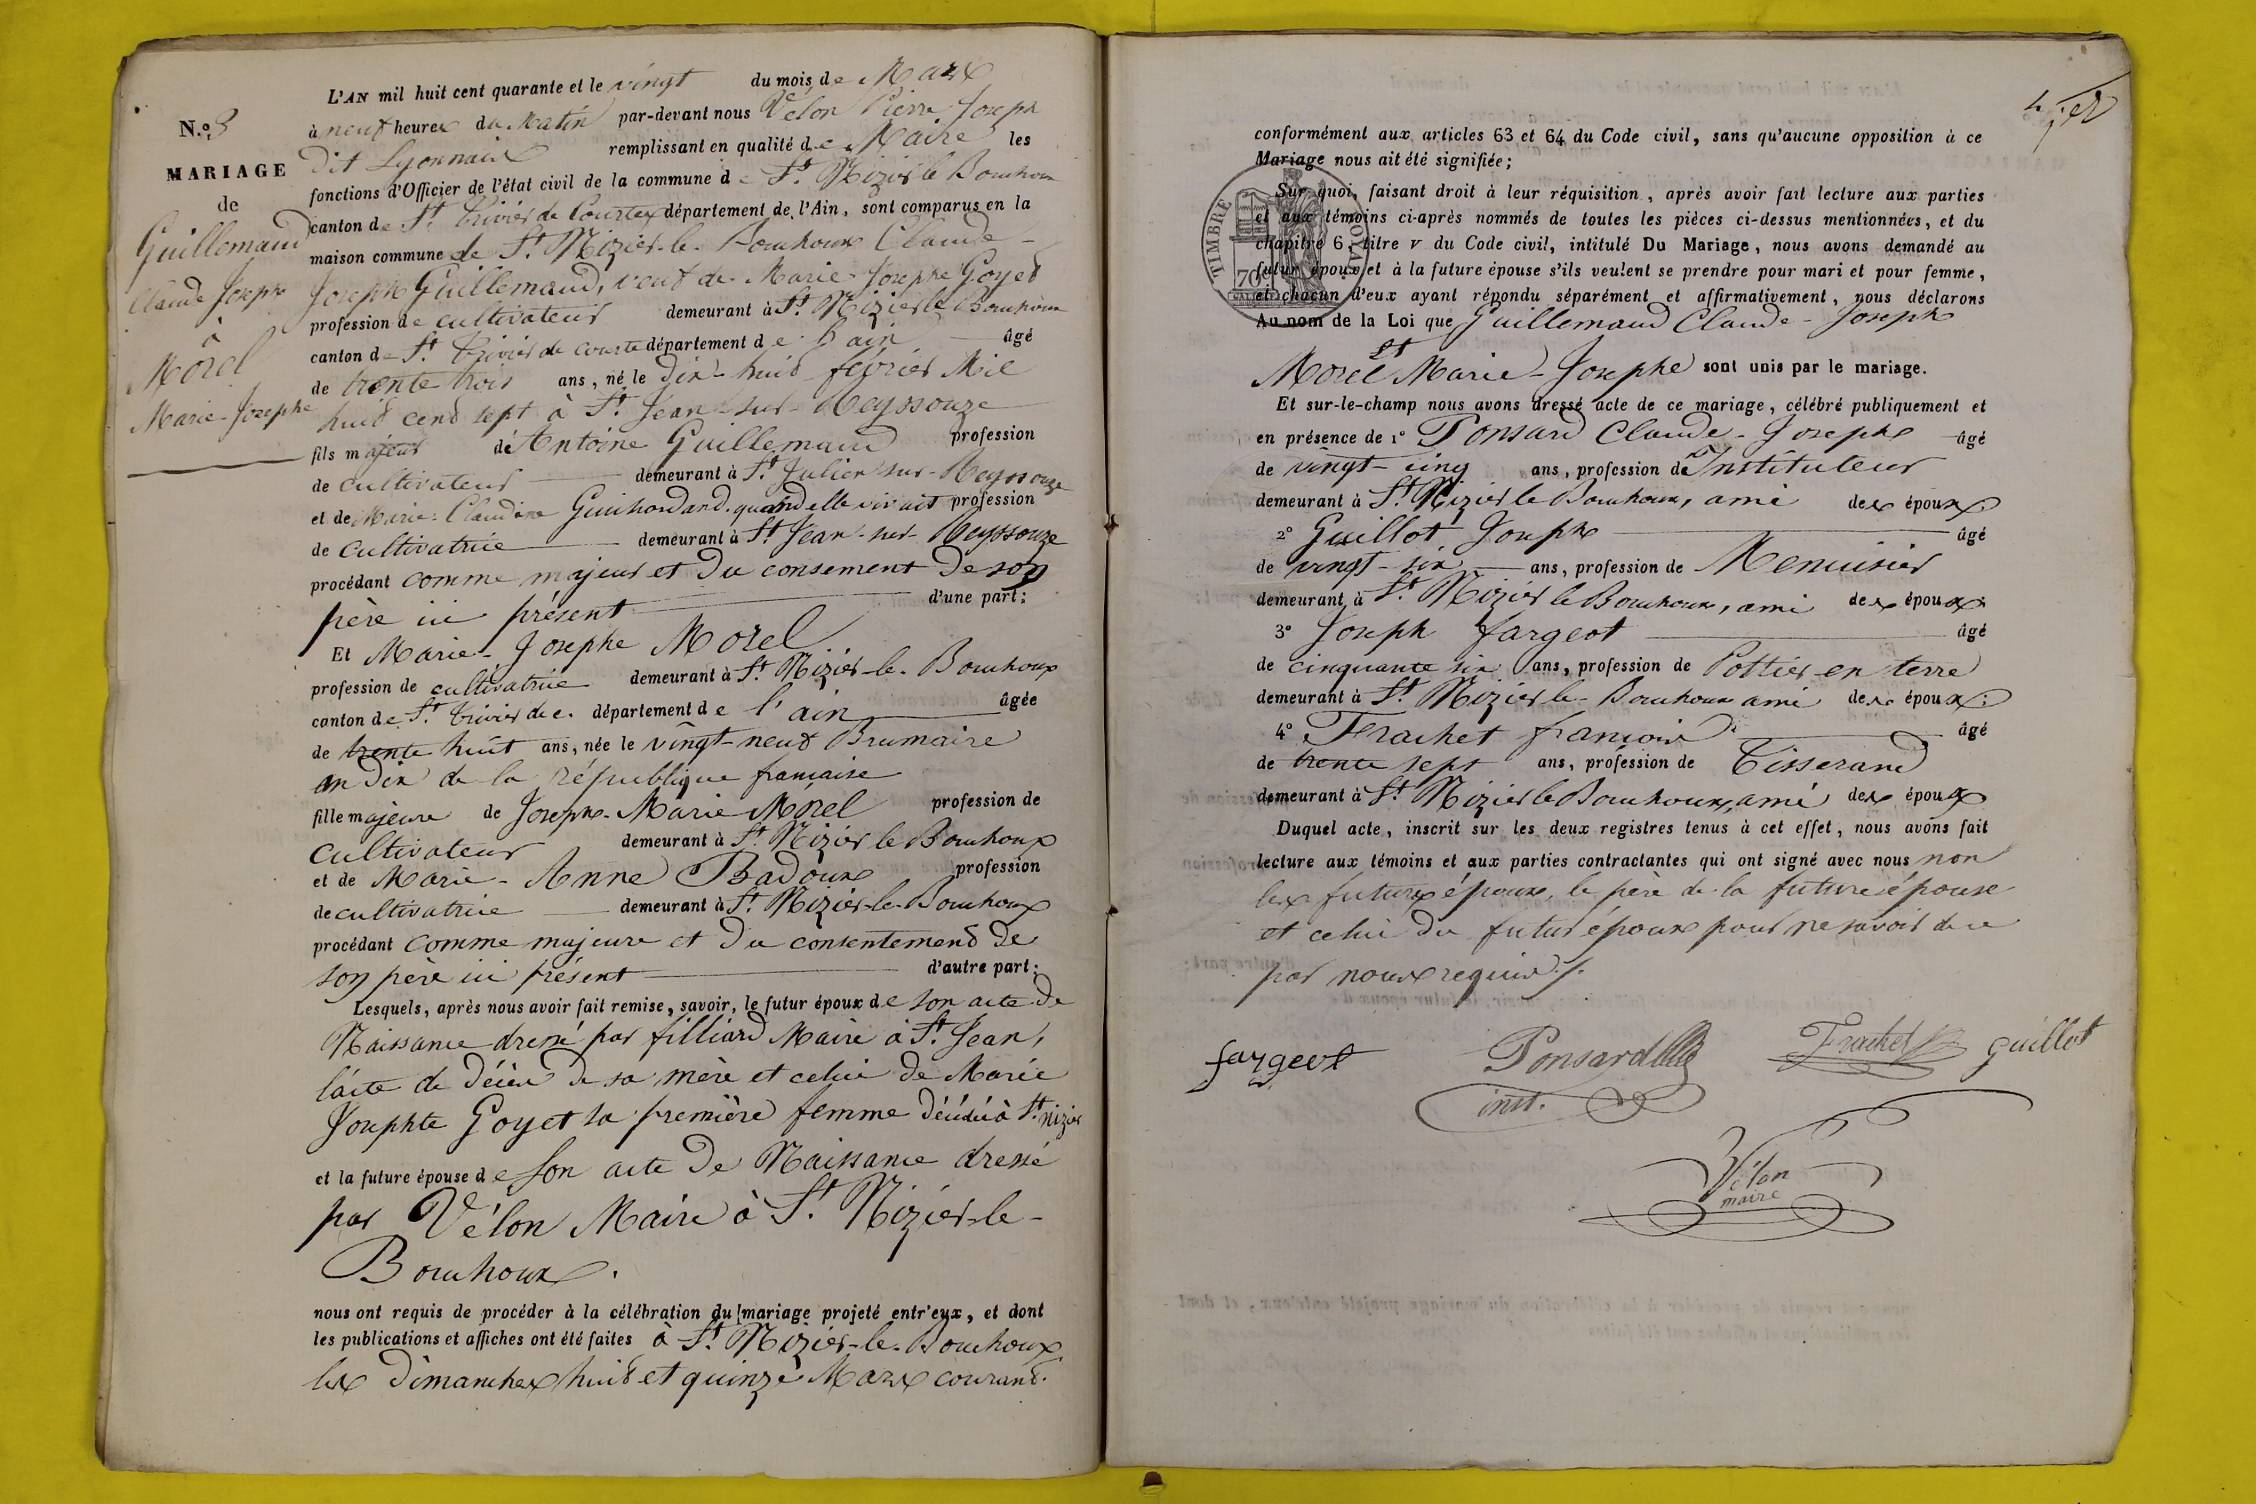 N.º 8
MARIAGE
de
Guillemaud
Claude Joseph
à
Morel
Marie-Josephe
L'AN mil huit cent quarante et le vingt du mois de Mars
à neuf heures du Matin par-devant nous Vélon Pierre Joseph
dit Lyonnais remplissant en qualité de Maire les
fonctions d'Officier de l'état civil de la commune de St. Nizier le Bouchoux
canton de St. Trivier de Courtes département de l'Ain, sont comparus en la
maison commune de St. Nizier-le-Bouchoux Claude-
Joseph Guillemaud, veuf de Marie-Josephe Goyet
profession de cultivateur demeurant à St. Nizier le Bouchoux
canton de St. Trivier de courte département de l'ain âgé
de trente trois ans, né le dix-huit février Mil
huit cent sept à St. Jean-sur-Reyssouze
fils majeur de Antoine Guillemaud profession
de cultivateur demeurant à St. Julien sur-Reyssouze
et de Marie-Claudine quand elle vivait profession
de cultivatrice demeurant à St. Jean-sur-Reyssouze
procédant comme majeur et du consement de son
père ici présent d'une part;
Et Marie-Josephe Morel
profession de cultivatrice demeurant à St. Nizier-le-Bouchoux
canton de St. Trivier de c. département de l'ain âgée
de trente huit ans, née le vingt-neuf Brumaire
an dix de la république française
fille majeure de Joseph-Marie Morel profession de
cultivateur demeurant à St. Nizier le Bouchoux
et de Marie-Anne Badoux profession
de cultivatrice demeurant à St. Nizier-le-Bouchoux
procédant comme majeure et du consentement de
son père ici présent d'autre part;
Lesquels, après nous avoir fait remise, savoir, le futur époux de son acte de
Naissance dressé par filliard Maire à St. Jean,
l'acte de décès de sa mère et celui de Marie
Josephte Goyet sa première femme décédée à St. Nizier
et la future épouse de son acte de Naissance dressé
par Vélon Maire à St. Nizier-le-
Bouchoux.
nous ont requis de procéder à la célébration du mariage projeté entr'eux, et dont
les publications et affiches ont été faites à St. Nizier-le-Bouchoux
les dimanches huit et quinze Mars courant.
conformément aux articles 63 et 64 du Code civil, sans qu'aucune opposition à ce
Mariage nous ait été signifiée;
TIMBRE ROYAL
70 C.
Sur quoi, faisant droit à leur réquisition, après avoir fait lecture aux parties
et aux témoins ci-après nommés de toutes les pièces ci-dessus mentionnées, et du
chapitre 6, titre V du Code civil, intitulé Du Mariage, nous avons demandé au
futur époux et à la future épouse s'ils veulent se prendre pour mari et pour femme,
et chacun d'eux ayant répondu séparément et affirmativement, nous déclarons
Au nom de la Loi que Guillemaud Claude-Joseph
et
Morel Marie-Josephe sont unis par le mariage.
Et sur-le-champ nous avons dressé acte de ce mariage, célébré publiquement et
en présence de 1º Ponsard Claude-Joseph âgé
de vingt-cinq ans, profession de Instituteur
demeurant à St. Nizier le Bouchoux, ami des époux
2º Guillot Joseph âgé
de vingt-six ans, profession de Menuisier
demeurant à St. Nizier le Bouchoux, ami des époux.
3º Joseph fargeot âgé
de cinquante six ans, profession de Pottier en terre
demeurant à St. Nizier-le-Bouchoux ami des époux.
4º Frachet francois âgé
de trente sept ans, profession de Tisserand
demeurant à St. Nizier le Bouchoux, ami des époux
Duquel acte, inscrit sur les deux registres tenus à cet effet, nous avons fait
lecture aux témoins et aux parties contractantes qui ont signé avec nous non
les futurs époux, le père de la future épouse
et celui du futur époux pour ne savoir de ce
par nous requis ./.
fargeot Ponsard Frachet guillot
inst.
Vélon
maire